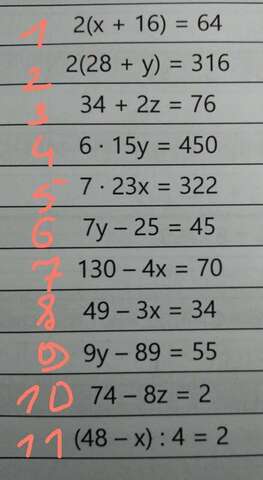 1 2(x + 16) = 64
2 2(28 + y) = 316
3 34 + 2z = 76
4 6 · 15y = 450
5 7 · 23x = 322
6 7y – 25 = 45
7 130 – 4x = 70
8 49 – 3x = 34
9 9y – 89 = 55
10 74 – 8z = 2
11 (48 – x) : 4 = 2